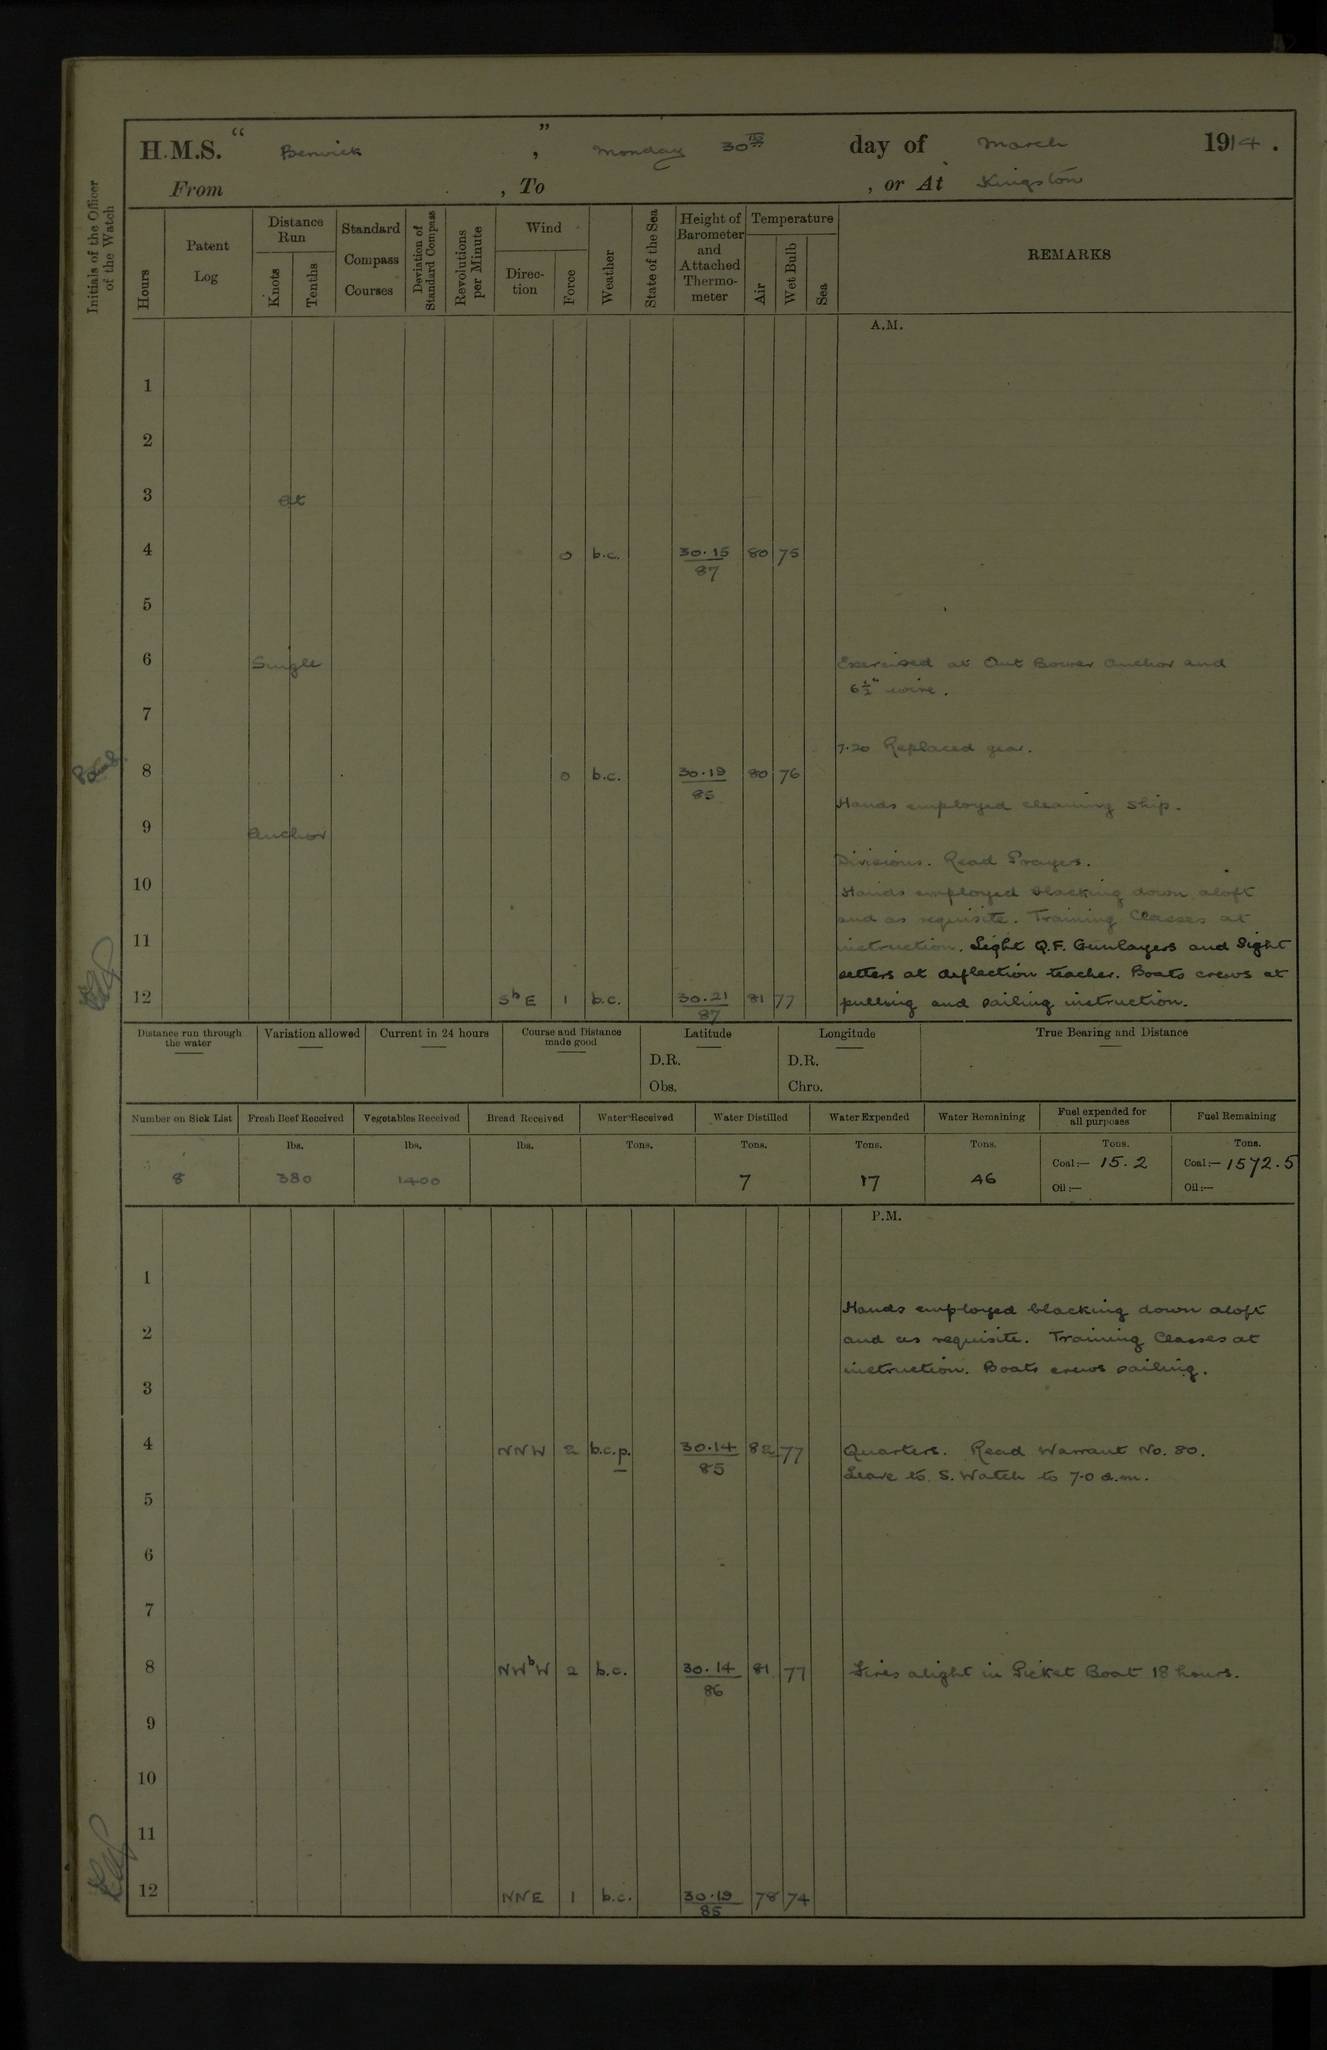 H.M.S. “ Berwick ” , Monday 30th day of March 1914 .
From , To , or At Kingston
Initials of the Officer of the Watch
Hours
Patent Log
Distance Run
Knots
Tenths
Standard Compass Courses
Deviation of Standard Compass
Revolutions per Minute
Wind
Direction
Force
Weather
State of the Sea
Height of Barometer and Attached Thermometer
Temperature
Air
Wet Bulb
Sea
REMARKS
A.M.
1
2
3 at
4 0 b.c. 30.15 80 75
87
5
6 Single Exercised at Out Bower Anchor and
6½" wire.
7
7.20 Replaced gear.
8 0 b.c. 30.19 80 76
85
Hands employed cleaning ship.
9 Anchor
Divisions. Read Prayers.
10 Hands employed blacking down aloft
and as requisite. Training Classes at
11 instruction. Light Q.F. Gunlayers and Sight
setters at deflection teacher. Boats crews at
12 SbE 1 b.c. 30.21 81 77 pulling and sailing instruction.
87
Distance run through the water
Variation allowed
Current in 24 hours
Course and Distance made good
Latitude
D.R.
Obs.
Longitude
D.R.
Chro.
True Bearing and Distance
Number on Sick List
8
Fresh Beef Received
lbs.
380
Vegetables Received
lbs.
1400
Bread Received
lbs.
Water Received
Tons.
Water Distilled
Tons.
7
Water Expended
Tons.
17
Water Remaining
Tons.
46
Fuel expended for all purposes
Tons.
Coal:— 15.2
Oil:—
Fuel Remaining
Tons.
Coal:— 1572.5
Oil:—
P.M.
1
Hands employed blacking down aloft
2 and as requisite. Training Classes at
instruction. Boats crews sailing.
3
4 NNW 2 b.c.p. 30.14 82 77 Quarters. Read Warrant No. 80.
85 Leave to S. Watch to 7.0 a.m.
5
6
7
8 NWbW 2 b.c. 30.14 81 77 Fires alight in Picket Boat 18 hours.
86
9
10
11
12 NNE 1 b.c. 30.19 78 74
85